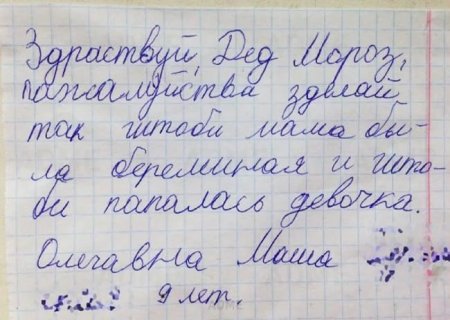 Здраствуй, Дед Мороз,
пажалуйства зделай
так штоби мама бы-
ла береминая и што-
би папалась девочка.
Олегавна Маша
9 лет.